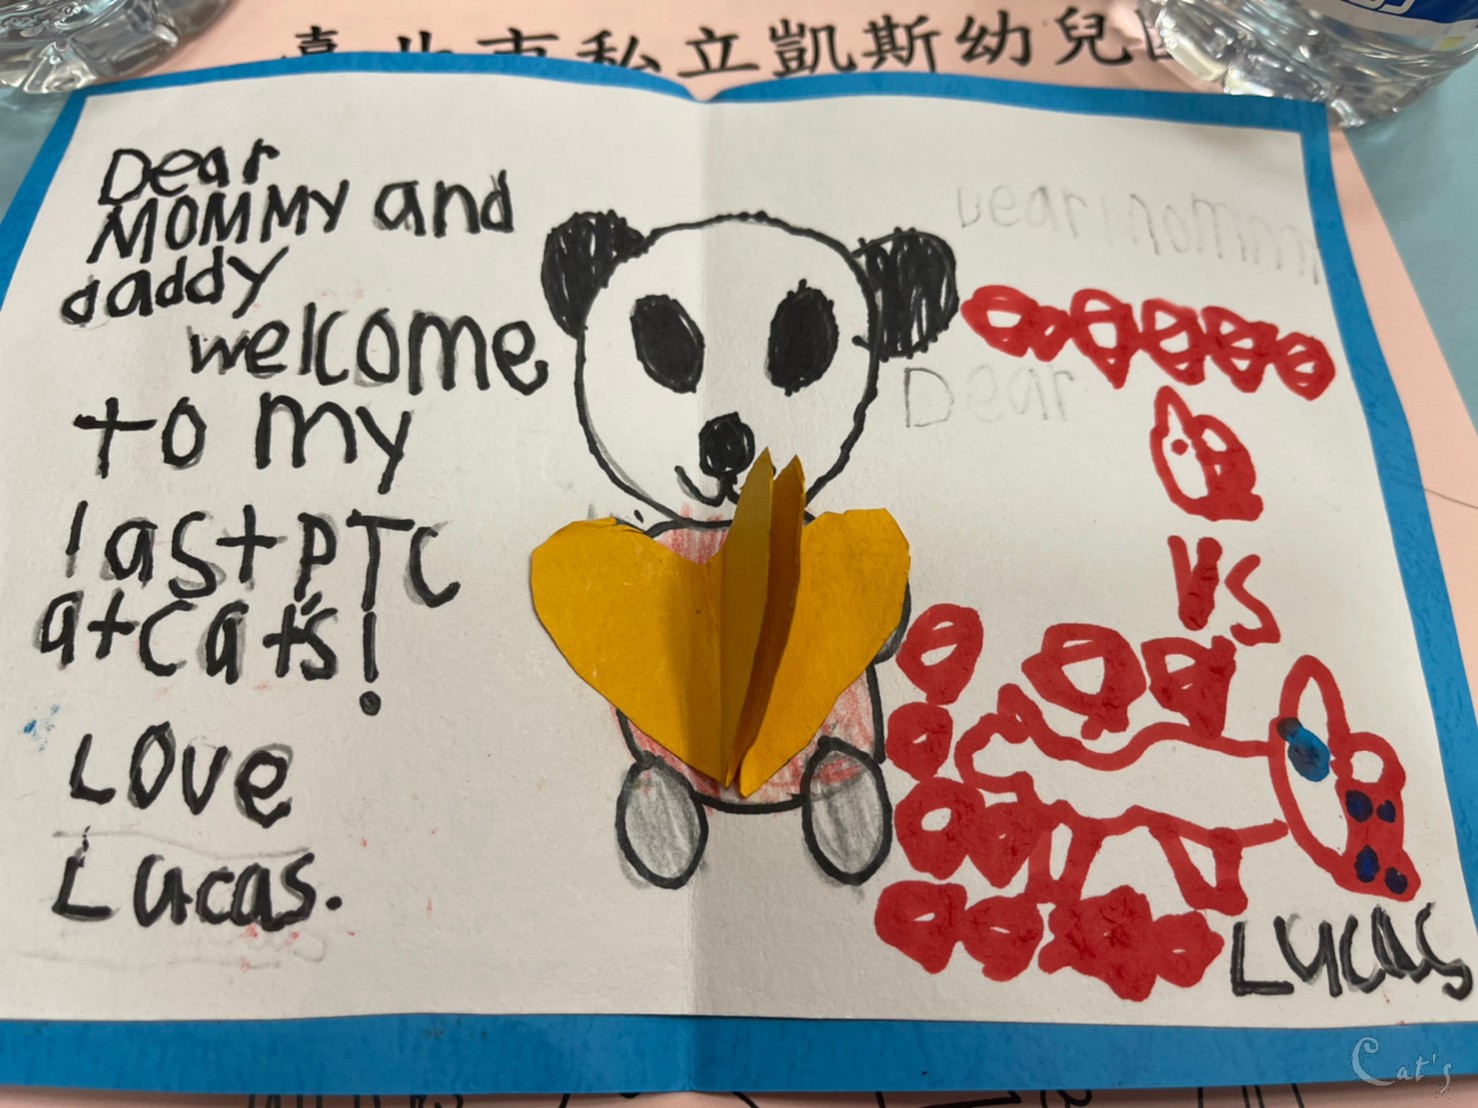 臺北市私立凱斯幼兒
Dear
MOMMY and
daddy
welcome
to my
last PTC
at Cat's!
Love
Lucas.
Dear mommy
Dear
VS
LUCAS
Cat's